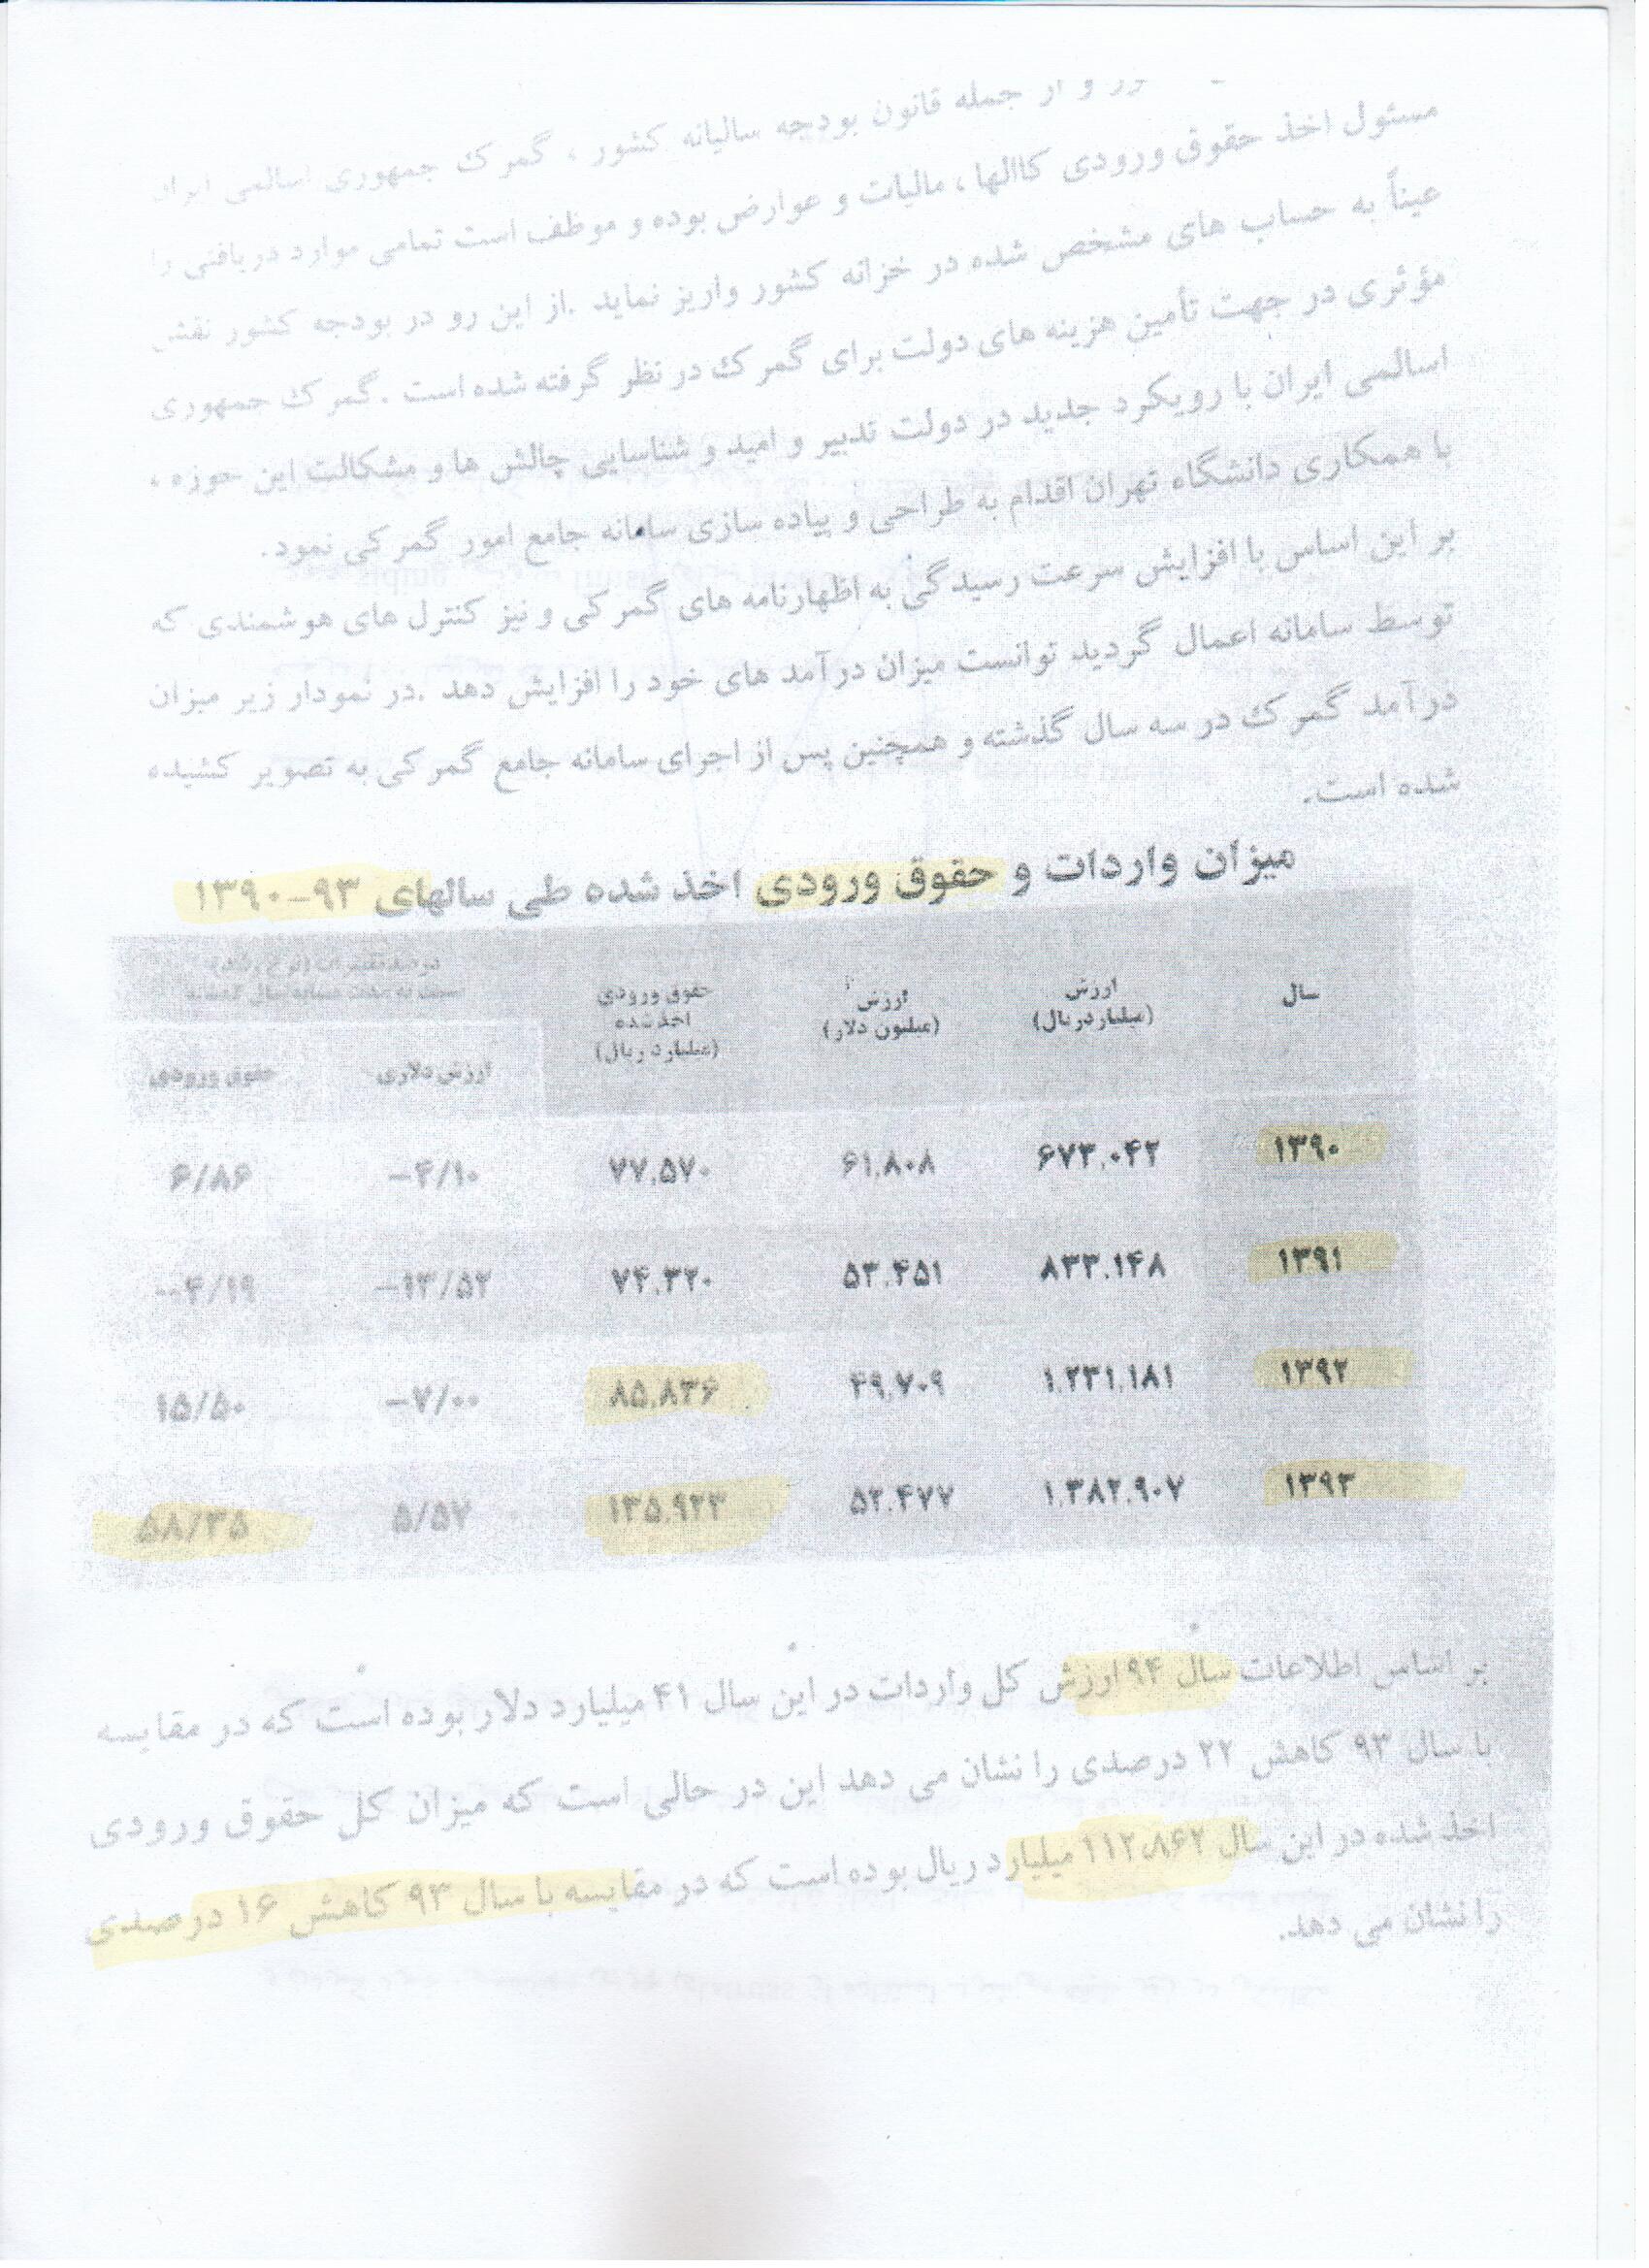 و از جمله قانون بودجه سالیانه کشور ، گمرک جمهوری اسالمی ایران
مسئول اخذ حقوق ورودی کاالها ، مالیات و عوارض بوده و موظف است تمامی موارد دریافتی را
عیناً به حساب های مشخص شده در خزانه کشور واریز نماید .از این رو در بودجه کشور نقش
مؤثری در جهت تأمین هزینه های دولت برای گمرک در نظر گرفته شده است .گمرک جمهوری
اسالمی ایران با رویکرد جدید در دولت تدبیر و امید و شناسایی چالش ها و مشکالت این حوزه ،
با همکاری دانشگاه تهران اقدام به طراحی و پیاده سازی سامانه جامع امور گمرکی نمود.
بر این اساس با افزایش سرعت رسیدگی به اظهارنامه های گمرکی و نیز کنترل های هوشمندی که
توسط سامانه اعمال گردید توانست میزان درآمد های خود را افزایش دهد .در نمودار زیر میزان
درآمد گمرک در سه سال گذشته و همچنین پس از اجرای سامانه جامع گمرکی به تصویر کشیده
شده است.
میزان واردات و حقوق ورودی اخذ شده طی سالهای ۹۳-۱۳۹۰
سال ارزش (میلیارد ریال) ارزش (میلیون دلار) حقوق ورودی اخذ شده (میلیارد ریال) درصد تغییرات (نرخ رشد) نسبت به مدت مشابه سال گذشته
ارزش دلاری حقوق ورودی
۱۳۹۰ ۶۷۳,۰۴۲ ۶۱,۸۰۸ ۷۷,۵۷۰ -۴/۱۰ ۶/۸۶
۱۳۹۱ ۸۳۳,۱۴۸ ۵۳,۴۵۱ ۷۴,۳۲۰ -۱۳/۵۲ -۴/۱۹
۱۳۹۲ ۱,۲۳۱,۱۸۱ ۴۹,۷۰۹ ۸۵,۸۳۶ -۷/۰۰ ۱۵/۵۰
۱۳۹۳ ۱,۳۸۲,۹۰۷ ۵۲,۴۷۷ ۱۳۵,۹۲۳ ۵/۵۷ ۵۸/۳۵
بر اساس اطلاعات سال ۹۴ ارزش کل واردات در این سال ۴۱ میلیارد دلار بوده است که در مقایسه
با سال ۹۳ کاهش ۲۲ درصدی را نشان می دهد این در حالی است که میزان کل حقوق ورودی
اخذ شده در این سال ۱۱۲,۸۶۲ میلیارد ریال بوده است که در مقایسه با سال ۹۳ کاهش ۱۶ درصدی
را نشان می دهد.